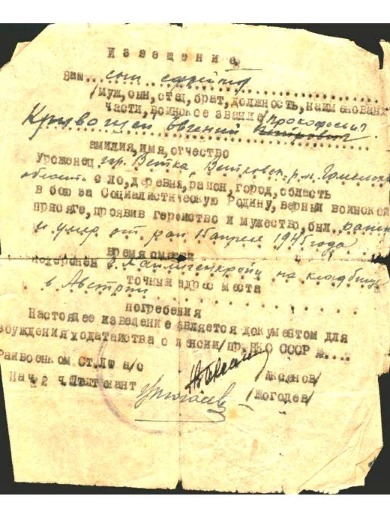 Извещение
Ваш сын
/муж, сын, отец, брат, должность, наименован
части, воинское звание/ Прокофьевич
Кривошей Евгений
амилия, имя, отчество
Уроженец гор. Ветка, Ветковск. р-н, Гомельск
область с ло, деревня, район, город, область
в бою за Социалистическую Родину, верный воинско
присяге, проявив геройство и мужество, был ранен
и умер от ран 15 апреля 1945 года
время смерти
похоронен в на кладбищ
в Австрии точный адрес места
погребения
Настоящее извещение является документом для
збуждения ходатайства о пенсии/пр. НКО СССР №
Райвоенком Ст. Л-т а/с /Аксенов/
Нач 2 ч. Лейтенант /Жогодев/